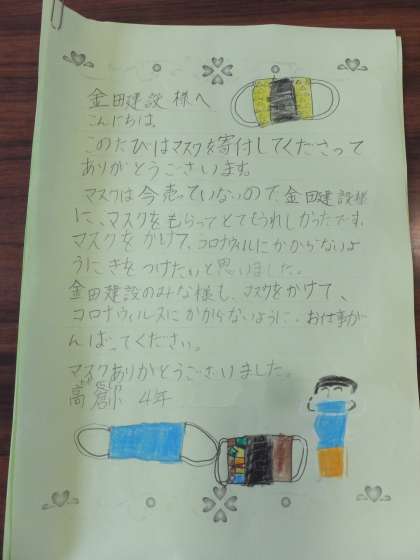 金田建設 様へ
こんにちは。
このたびはマスクを寄付してくださって
ありがとうございます。
マスクは今売っていないので、金田建設様
に、マスクをもらってとてもうれしかったです。
マスクをかけて、コロナウィルにかからないよ
うにきをつけたいと思いました。
金田建設のみな様も、マスクをかけて、
コロナウィルスにかからないように、お仕事が
んばってください。
マスクありがとうございました。
高 4年